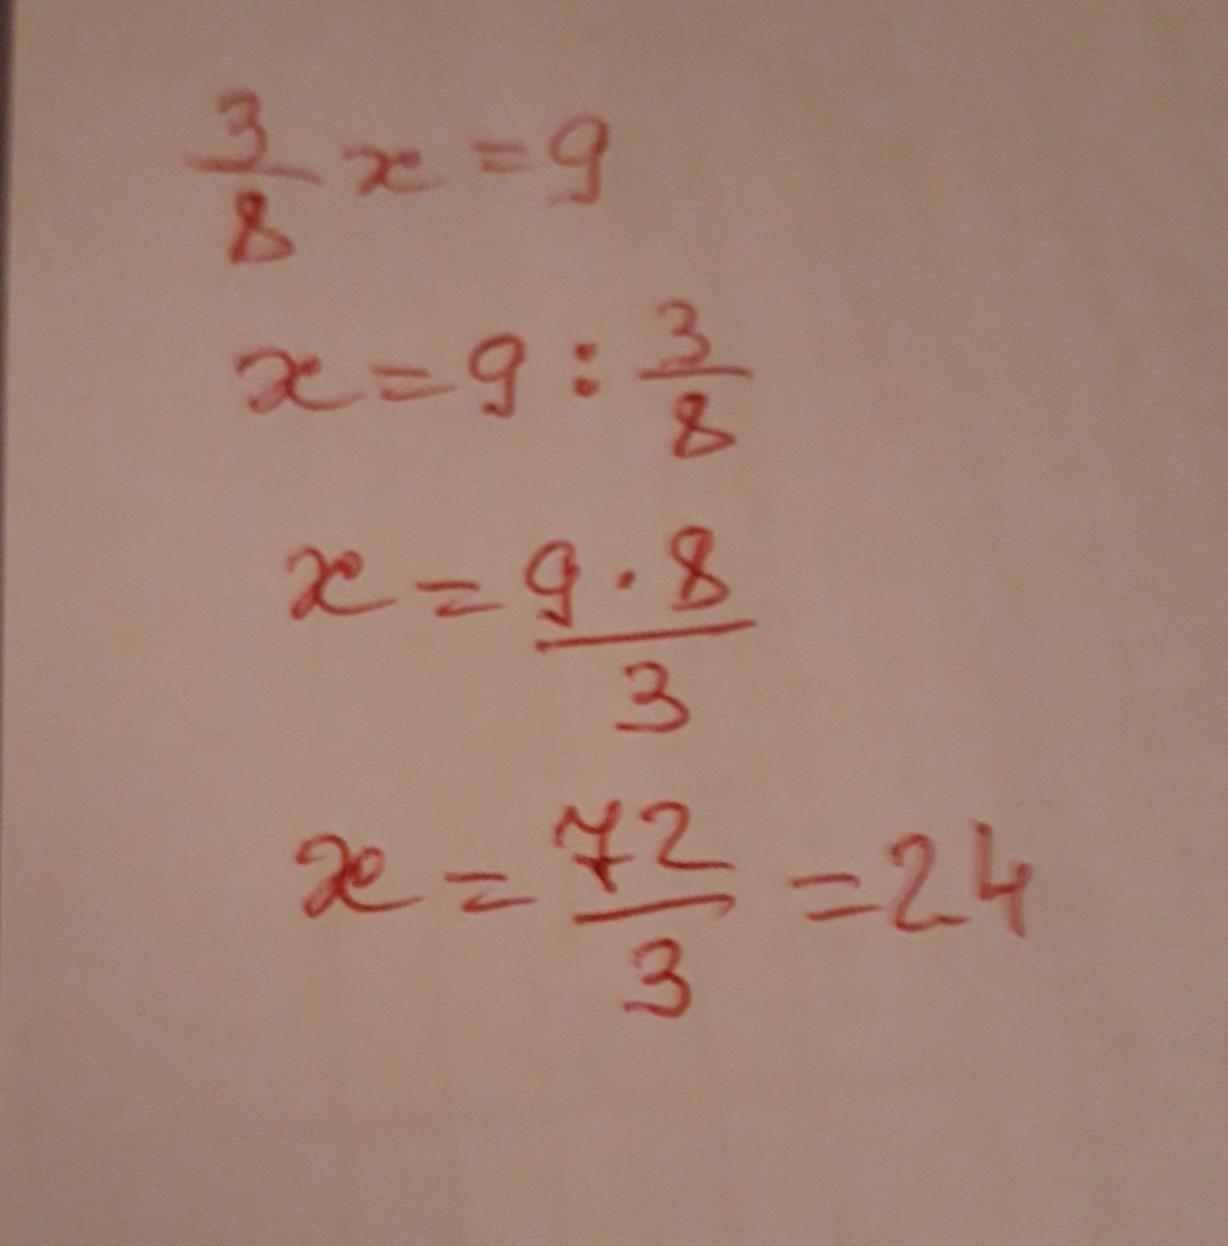 3/8 x = 9
x = 9 : 3/8
x = 9 · 8/3
x = 72/3 = 24